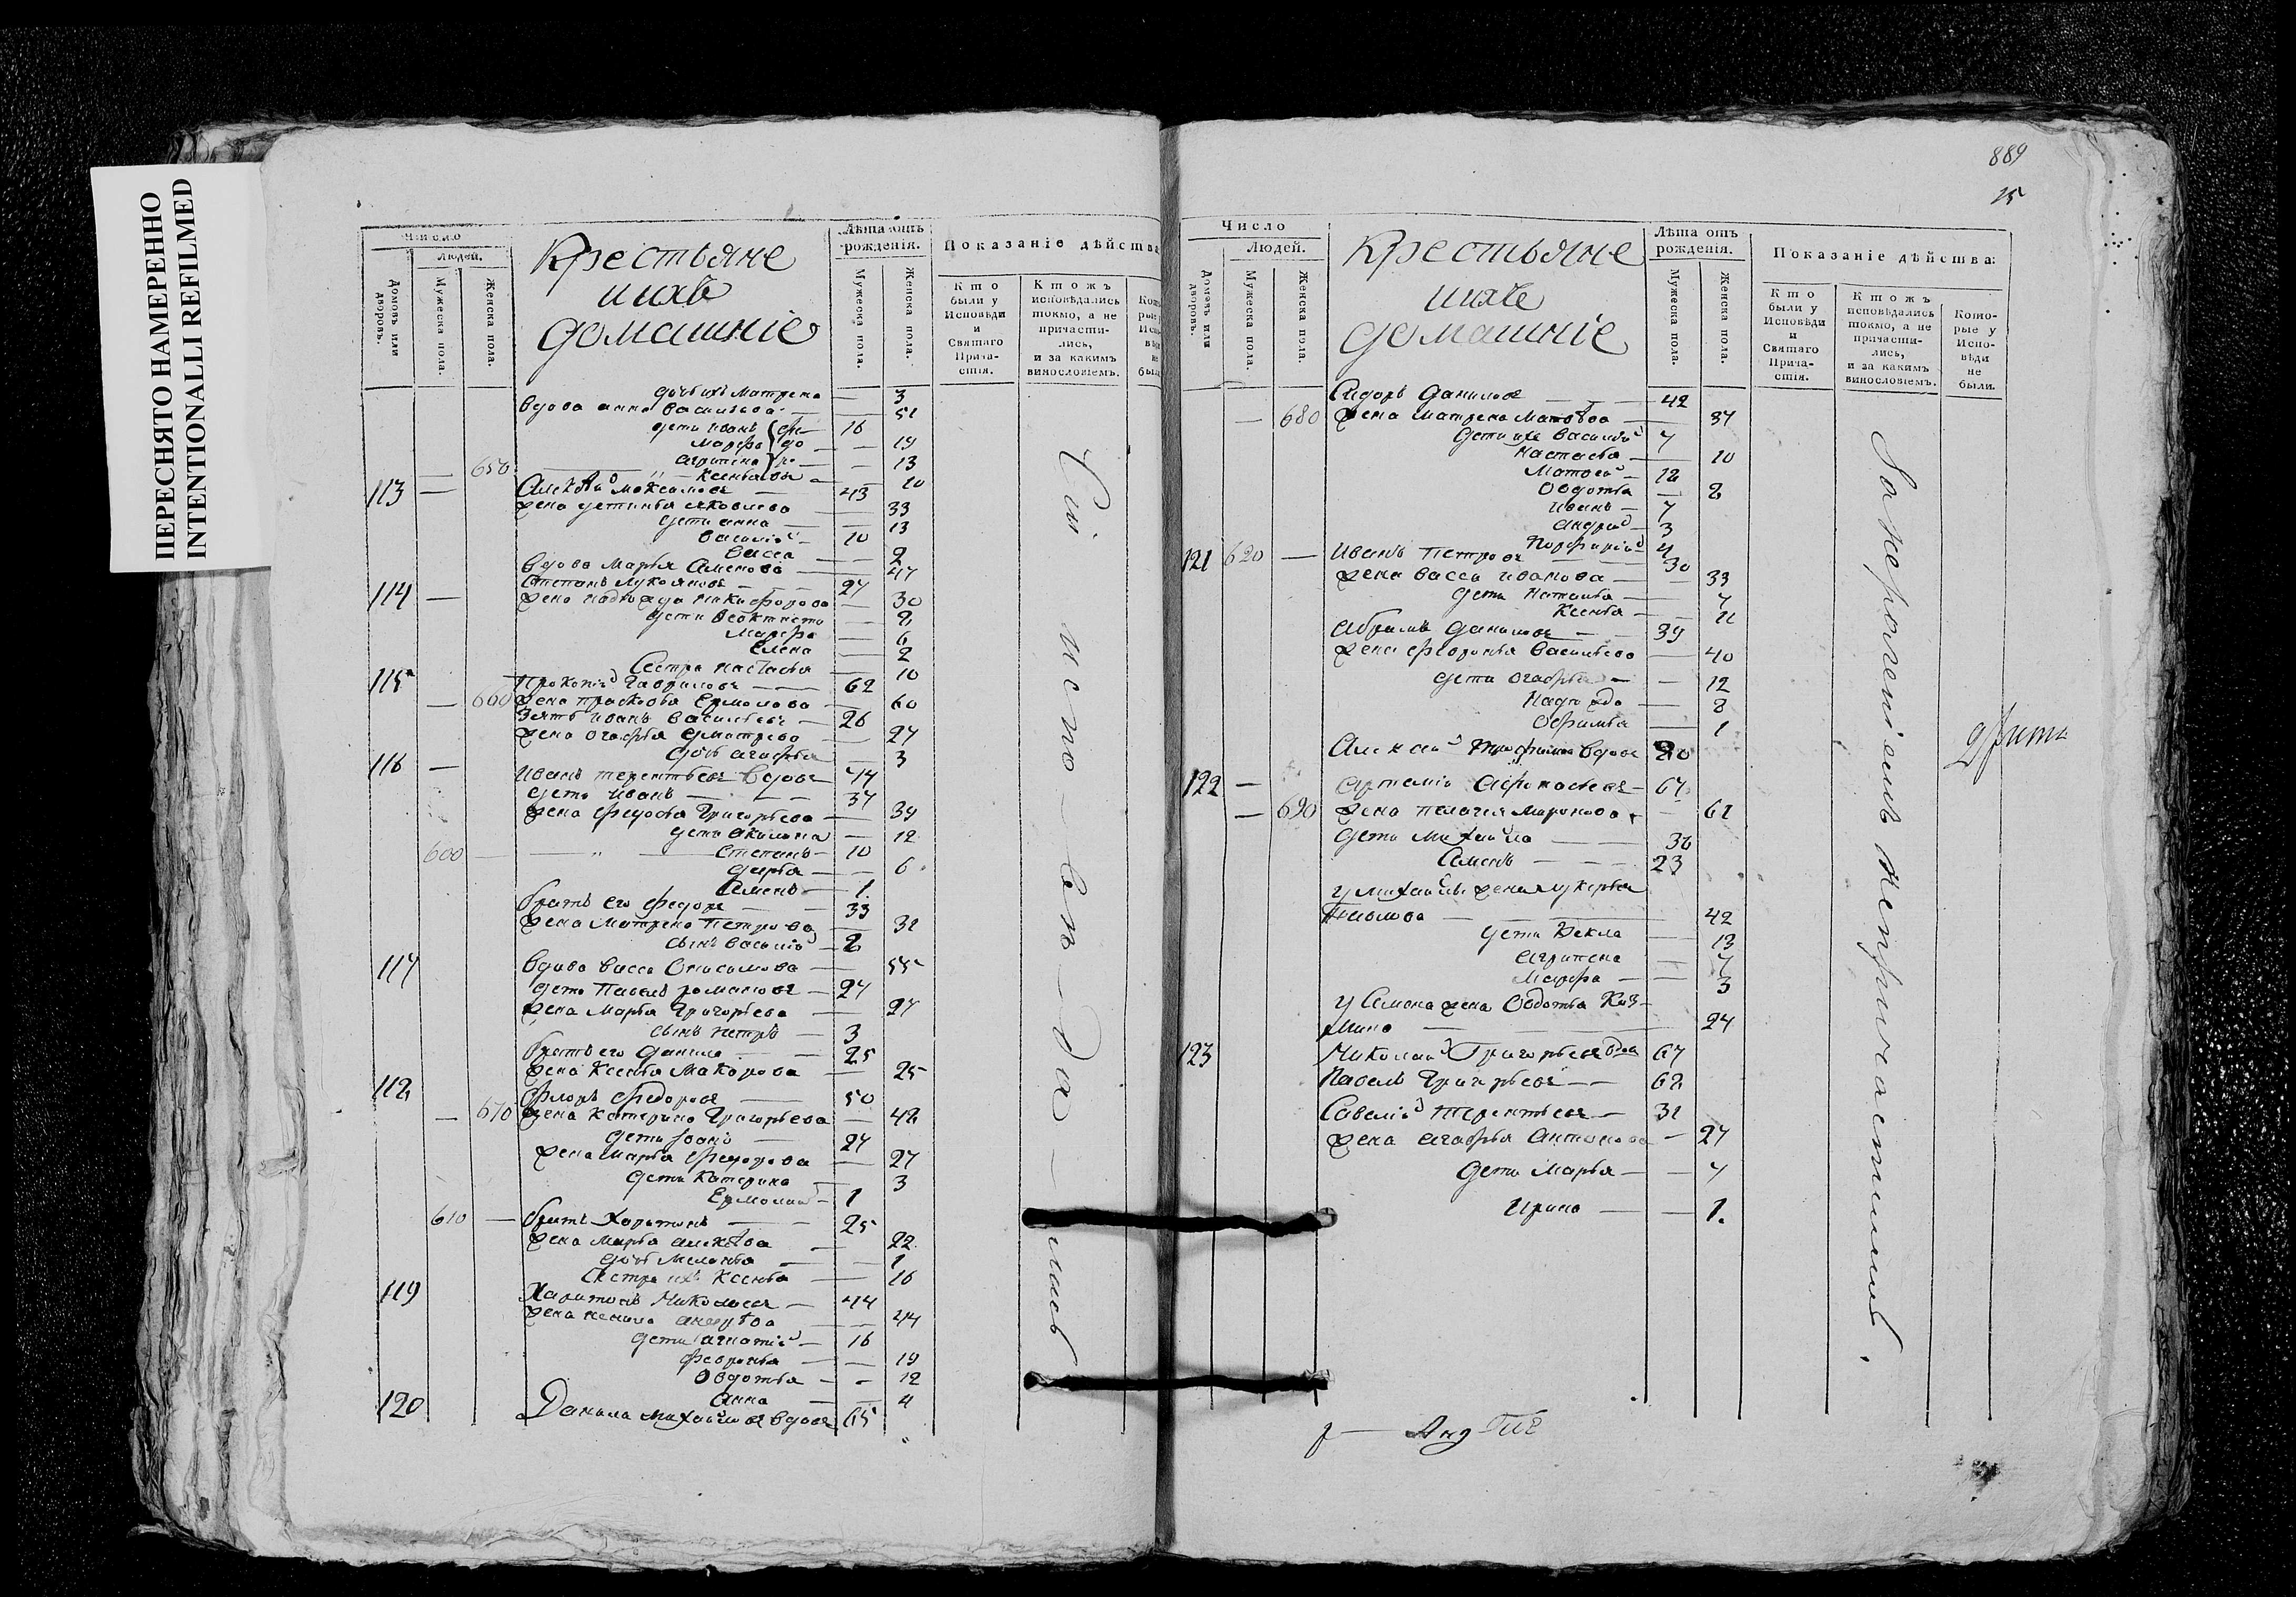 ПЕРЕСНЯТО НАМЕРЕННО
INTENTIONALLI REFILMED
Число
Людей.
Домовъ или дворовъ.
Мужеска пола.
Женска пола.
Крестьяне
и ихъ
домашніе
Лѣта отъ рожденія.
Мужеска пола.
Женска пола.
Показаніе дѣйства
Кто были у Исповѣди и Святаго Прича-стія.
Ктожъ исповѣдались токмо, а не причасти-лись, и за какимъ винословіемъ.
дочь ихъ Матрена — 3
Вдова анна Васильева — 51
дети иванъ 16
Марфа — 19
агрипена — 13
650 Ксенья — 10
113 — Алексѣй Максимовъ 43
жена устинья яковлева — 33
дети анна — 13
Василій — 10
Васса — 2
Вдова Марья Семенова — 47
114 — Степанъ Лукояновъ — 27
жена надежда никифорова — 30
дети Феоктиста — 8
Марфа — 6
Елена — 2
Сестра настасья — 10
115 Прокопій Гавриловъ — 62
— 660 жена прасковья Ермолова — 60
Зять иванъ Васильевъ — 26
жена огафья дмитрева — 27
дочь агафья — 3
116 — Иванъ терентьевъ вдовъ 74
дети иванъ — 37
жена федосья Григорьева — 39
дети акилина — 12
600 — Степанъ — 10
дарья — 6
Семенъ — 1
братъ его федоръ — 33
жена Матрена Петрова — 31
сынъ василій — 2
117 Вдова васса — 55
дети Павелъ романовъ — 27
жена Марья Григорьева — 27
сынъ петръ — 3
братъ его данила — 25
жена Ксенья Макарова — 25
118 Флоръ Федоровъ — 50
— 670 жена Катерина Григорьева — 48
дети — 27
жена Марья Федорова — 27
дети Катерина — 3
Ермолай — 1
610 — братъ Харитонъ — 25
жена Марья — 22
дочь Меланья — 1
Сестра ихъ Ксенья — 16
119 Харитонъ Николаевъ — 44
жена — 44
дети игнатій — 16
февронья — 19
Овдотья — 12
анна — 4
120 Данила Михайловъ вдовъ 65
Сіи исповѣда — лись
889
15
Число
Людей.
Домовъ или дворовъ.
Мужеска пола.
Женска пола.
Крестьяне
и ихъ
домашніе
Лѣта отъ рожденія.
Мужеска пола.
Женска пола.
Показаніе дѣйства:
Кто были у Исповѣди и Святаго Прича-стія.
Ктожъ исповѣдались токмо, а не причасти-лись, и за какимъ винословіемъ.
Кото-рые у Испо-вѣди не были.
Сидоръ Даниловъ — 42
— 680 жена Матрена — 37
дети ихъ Василій 7
Настасья — 10
Матвей — 12
Овдотья — 8
Иванъ — 7
андрей — 3
Порфирій 4
121 620 — Иванъ Петровъ 30
жена васса иванова — 33
дети Наталья — 7
Ксенья
Абрамъ Даниловъ — 39
жена февронья Васильева — 40
дети огафья — 12
Надежда — 8
— 1
Алексей вдовъ 80
122 — Артемій Афонасьевъ — 67
— 690 жена пелагея миронова — 61
дети Михайла — 38
Семенъ — 23
у Михайлы жена лукерья
Павлова — 42
дети Фекла — 13
агрипена — 7
Марфа — 3
у Семена жена Овдотья Куз-
мина — 24
123 Николай Григорьевъ 67
Павелъ Григорьевъ — 62
Савелій терентьевъ — 31
жена агафья антонова — 27
дети Марья — 4
Ирина — 1.
За нероченіемъ непричастны.